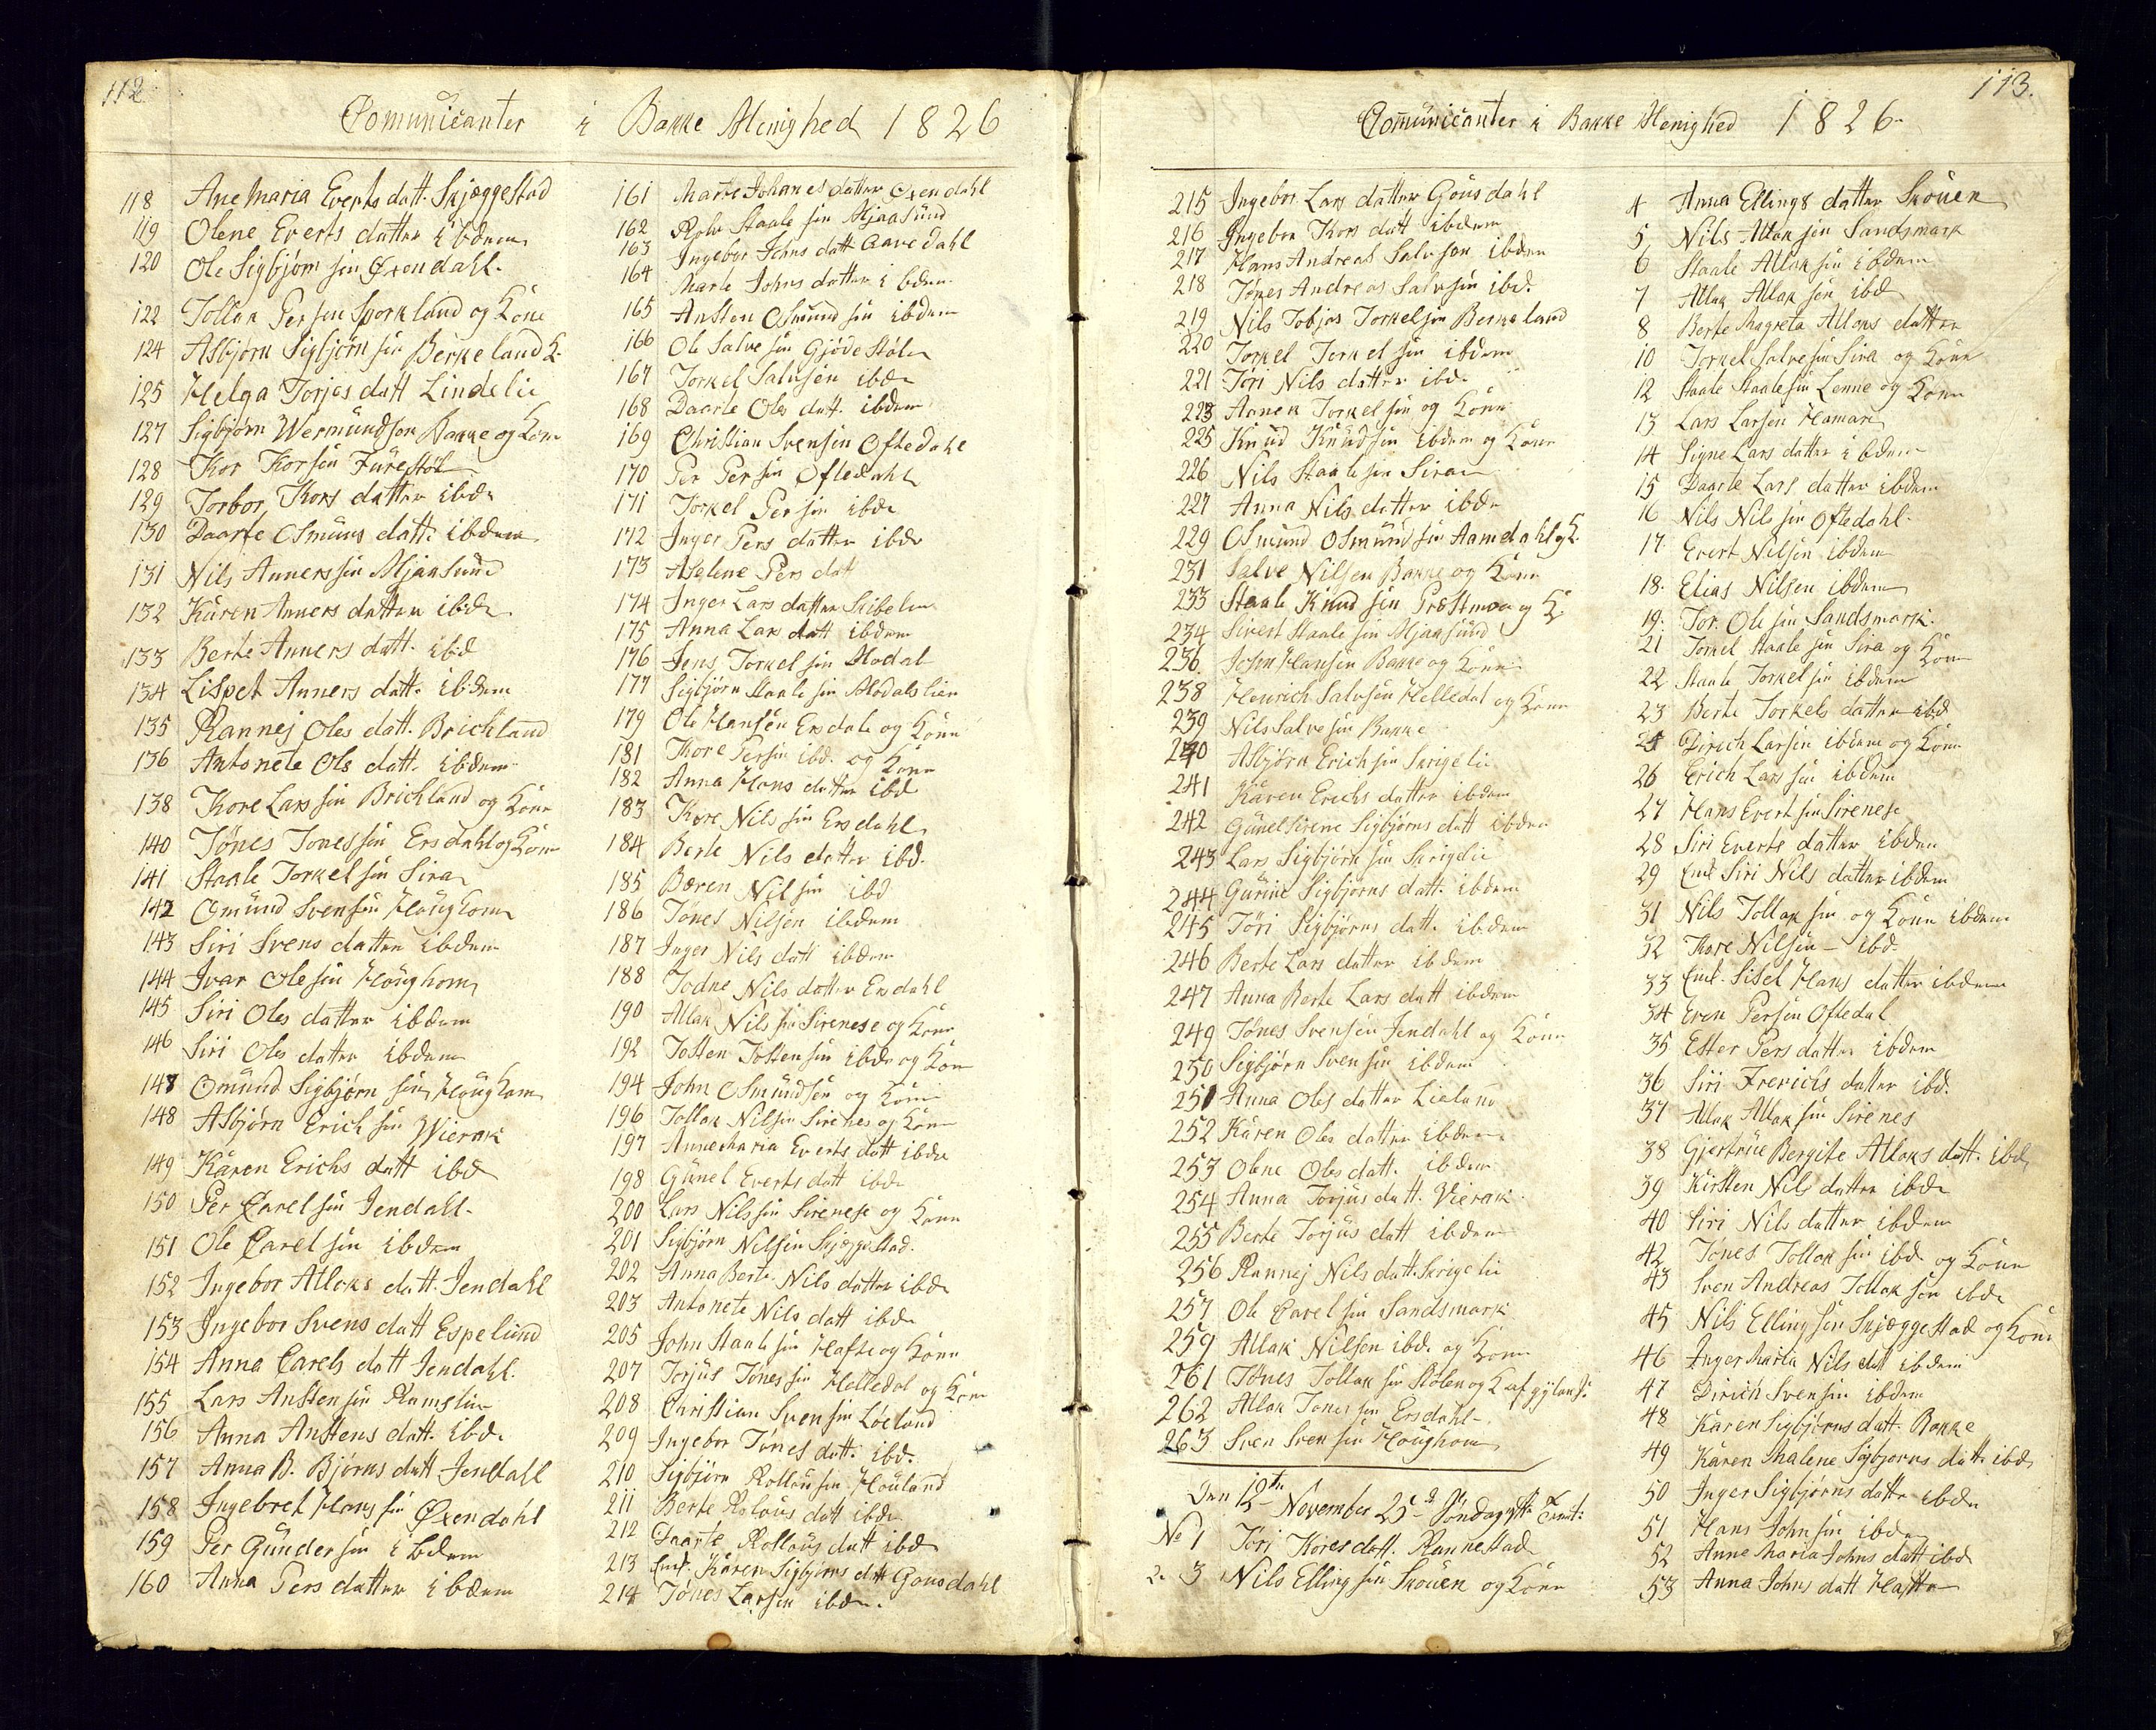 112
Comunicanter i Bakke Menighed 1826
118 Ane Maria Everts datt. Skjæggestad
119 Olene Everts datter ibdem
120 Ole Sigbjørn sin Øxendahl.
122 Tollak Per sen Sporkland og Kone
124 Asbjørn Sigbjørn sin Berkeland K.
125 Helga Torjes datt Lindelie
127 Sigbjørn Wermundson Bakke og Kone
128 Kor Korsen Furestøl
129 Torbor Kors datter ibd.
130 Daarte Osmuns datt. ibdem
131 Nils Anners sin Mjaasund
132 Karen Anners datter ibd.
133 Berte Anners datt. ibd
134 Lispet Anners datt. ibdem
135 Rannej Oles datt. Brichland
136 Antonete Ols datt. ibdem
138 Kore Lars sin Brichland og Kone
140 Tønes Tones sin Ersdahl og Kone
141 Staale Torkel sin Sira
142 Omund Svensen Houghom
143 Siri Svens datter ibdem
144 Ivar Ole sin Houghom
145 Siri Oles datter ibdem
146 Siri Ols datter ibdem
148 Omund Sigbjørn sin Houghom
148 Asbjørn Erich sin Wierak
149 Karen Erichs datt ibd
150 Per Carel sin Jendahl.
151 Ole Carel sin ibdem
152 Ingebor Atlaks datt. Jendahl
153 Ingebor Svens datt Espelund
154 Anna Carels datt Jendahl.
155 Lars Ansten sin Ramslie
156 Anna Anstens datt. ibd.
157 Anna B. Bjørns datt Jendahl
158 Ingebret Hans sin Øxendahl
159 Per Gunder sin ibdem
160 Anna Pers datter ibdem
161 Marte Johanes datter Øxendahl
162 Rolv Staale sin Mjaasund
163 Ingebor Johns datt Aavedahl
164 Marte Johns datter ibdem
165 Ansten Osmund sin ibdem
166 Ole Salve sin Gjødestølen
167 Torkel Salvsen ibd.
168 Daarte Oles datt. ibdem
169 Christian Svensen Oftedahl
170 Per Per sin Oftedahl
171 Torkel Per sin ibd.
172 Inger Pers datter ibd.
173 Aselene Pers datt
174 Inger Lars datter Skibelie
175 Anna Lars datt ibdem
176 Jens Torkel sin Modal
177 Sigbjørn Staale sin Modalslien
179 Ole Hansen Ersdale og Konne
181 Thore Persen ibd. og Kone
182 Anna Hans datter ibd
183 Kore Nils sin Ersdahl
184 Berte Nils datter ibd.
185 Børen Nil sin ibd
186 Tønes Nilsen ibdem
187 Inger Nils datt ibdem
188 Jodne Nils datter Ersdahl
190 Atlak Nils sin Sirenese og Kone
192 Josten Josten sin ibd. og Kone
194 John Osmundsen og Kone
196 Tollak Nilsen Sirenes og Kone
197 Anne Maria Everts datt ibdem
198 Gunel Everts datt ibd.
200 Lars Nils sin Sirenese og Konn
201 Sigbjørn Nilsen Skjæggestad.
202 Anna Berte Nils datter ibd.
203 Antonete Nils datt ibd.
205 John Staale sin Hafte og Konn
207 Torjus Tønes sin Helledal og Kone
208 Christian Sven sin Løeland
209 Ingebor Tønes datt. ibd.
210 Sigbjørn Rollou sin Houland
211 Berte Rolous datt ibd.
212 Daarte Rollous datt ibd.
213 Enk. Karen Sigbjørns datt Gousdahl
214 Tønes Larsen ibdn.
113.
Comunicanter i Bakke Menighed 1826.
215 Ingebor Lars datter Gousdahl
216 Ingebor Kors datt ibdem
217 Hans Andreas Salvsen ibdem
218 Tønes Andreas Salvsin ibd.
219 Nils Tobjas Torkelsen Berkeland
220 Torkel Torkel sin ibdem
221 Tøri Nils datter ibd.
223 Annek Torkel sin og Konn
225 Knud Knudsen ibdem og Konn
226 Nils Staale sin Sira
227 Anna Nils datter ibd.
229 Osmund Osmund sin Aamdahl og K.
231 Salve Nilsen Bakke og Konn
233 Staale Knud sin Præstmoe og K.
234 Sivert Staale sin Mjaasund
236 John Hansen Bakke og Konn
238 Henrich Salvsen Helledal og Konn
239 Nils Salve sin Bakke
240 Asbjørn Erich sin Skrigelie
241 Karen Erichs datter ibdem
242 Gunelsirene Sigbjørns datt ibdem
243 Lars Sigbjørn sin Skrigelie
244 Gurine Sigbjørns datt. ibdem
245 Tøri Sigbjørns datt. ibdem
246 Berte Lars datter ibdem
247 Anna Berte Lars datt ibdem
249 Tønes Svensen Jendahl og Konn
250 Sigbjørn Sven sin ibdem
251 Anna Oles datter Lieland
252 Karen Oles datter ibdem
253 Olene Oles datt. ibdem
254 Anna Torjus datt. Vierak.
255 Berte Torjus datt ibdem
256 Rannej Nils datt. Skrigelie
257 Ole Carel sin Sandsmark
259 Atlak Nilsen ibd. og Konn
261 Tønes Tollak sin Stølen og K af gyland.
262 Atlak Tones sin Ersdahl
263 Sven Sven sin Houghom
Den 12te November 25de Søndag efter Trinit:
No 1 Tøri Kores datt. Rannestad
2. 3 Nils Elling sin Skouen og Konn
4 Anna Ellings datter Skouen
5 Nils Atlak sin Sandsmark
6 Staale Atlak sin ibdem
7 Atlak Atlak sin ibd
8 Berte Magreta Atlaks datter
10 Torkel Salve sin Sira og Konn
12 Staale Staale sin Lenne og Konn
13 Lars Larsen Hamar
14 Signe Lars datter ibdem
15 Daarte Lars datter ibdem
16 Nils Nils sin Oftedahl.
17 Evert Nilsen ibdem
18. Elias Nilsen ibdem
19. Tor. Ole sin Sandsmark.
21 Tormel Staale sin Sira og Kone
22 Staale Torkel sin ibdem
23 Berte Torkels datter ibd
25 Dirich Larsen ibdem og Konn
26 Erich Lars sin ibdem
27 Hans Evert sin Sirenese
28 Siri Everts datter ibdem
29 Enk Siri Nils datter ibdem
31 Nils Tollak sin og Konn ibdem
32 Kore Nilsen - ibd.
33 Enk. Sisel Hans datter ibdem
34 Even Persen Oftedal
35 Ester Pers datter ibdem
36 Siri Frerichs datter ibd.
37 Atlak Atlak sin Sirenes
38 Gjertrue Bergite Atlaks datt. ibd.
39 Kirsten Nils datter ibd.
40 Siri Nils datter ibdem
42 Tønes Tollak sin ibd. og Konn
43 Sven Andreas Tollak sen ibd.
45 Nils Elling sen Skjæggestad og Kone
46 Inger Maria Nils datt ibdem
47 Dirich Svensin ibdem
48 Karen Sigbjørns datt. Bakke
49 Karen Malene Sigbjørns datt. ibd.
50 Inger Sigbjørns datter ibdn
51 Hans John sin ibdem
52 Anne Maria Johns datt ibd.
53 Anna Johns datt Hafte